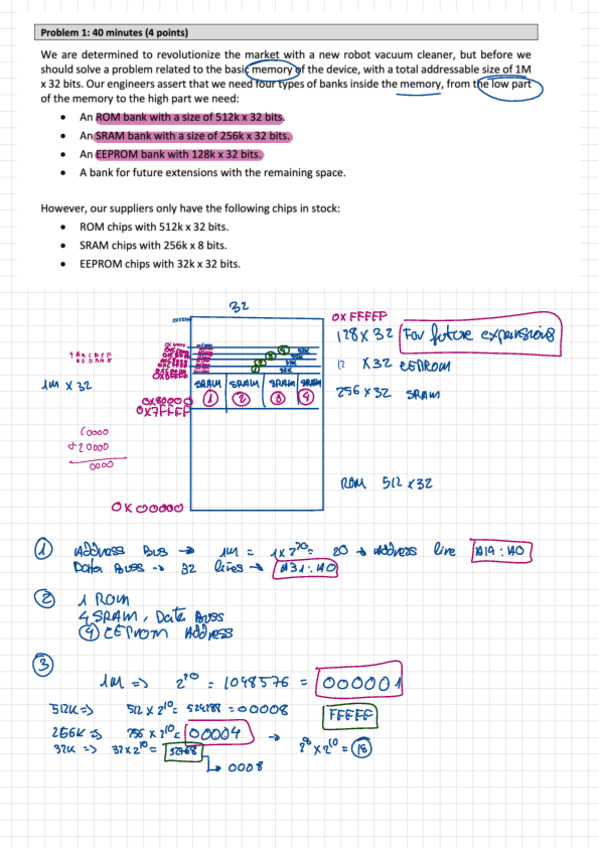 Problem 1: 40 minutes (4 points)
We are determined to revolutionize the market with a new robot vacuum cleaner, but before we
should solve a problem related to the basic memory of the device, with a total addressable size of 1M
x 32 bits. Our engineers assert that we need four types of banks inside the memory, from the low part
of the memory to the high part we need:
• An ROM bank with a size of 512k x 32 bits.
• An SRAM bank with a size of 256k x 32 bits.
• An EEPROM bank with 128k x 32 bits.
• A bank for future extensions with the remaining space.
However, our suppliers only have the following chips in stock:
• ROM chips with 512k x 32 bits.
• SRAM chips with 256k x 8 bits.
• EEPROM chips with 32k x 32 bits.
32
0XFFFFF
128 X 32 For future expansions
X32 EEPROM
1M X 32
SRAM SRAM SRAM SRAM
1 2 3 4
256 X 32 SRAM
0X80000
0X7FFFF
+20000
0000
ROM 512 X 32
0X00000
1 Address Bus → 1M = 1x2^20 = 20 → address line A19:A0
Data Buss → 32 lines → A31:A0
2 1 ROM
4 SRAM, Data Buss
4 EEPROM Address
3
1M => 2^20 = 1048576 = 000001
512K => 512 x 2^10 = 524288 = 00008 FFFFF
256K => 256 x 2^10 = 00004 → 2^8 x 2^10 = 18
32K => 32 x 2^10 = 32768
↳ 0008